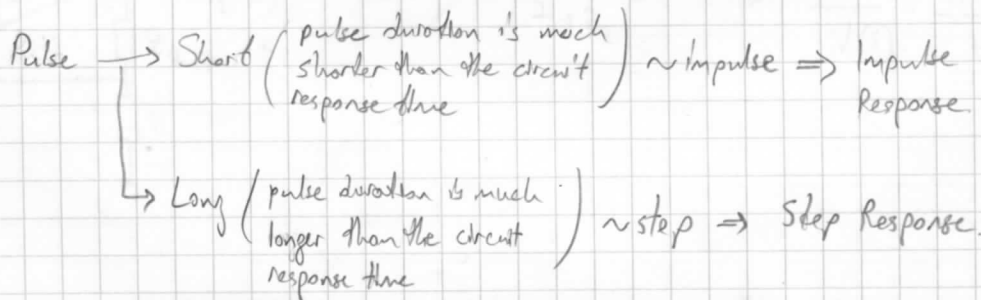 Pulse → Short ( pulse duration is much
shorter than the circuit
response time ) ~ impulse ⇒ Impulse
Response.
↳ Long ( pulse duration is much
longer than the circuit
response time ) ~ step ⇒ Step Response.